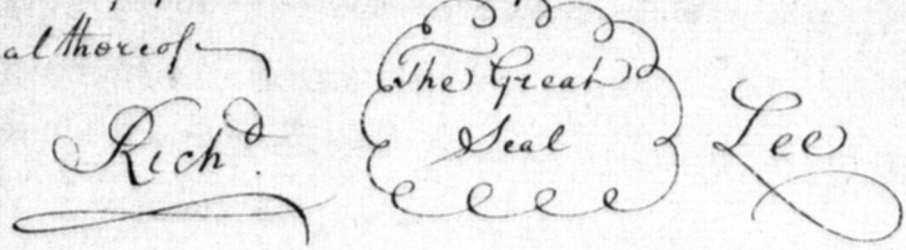 al thereof
Richd. The Great Seal Lee